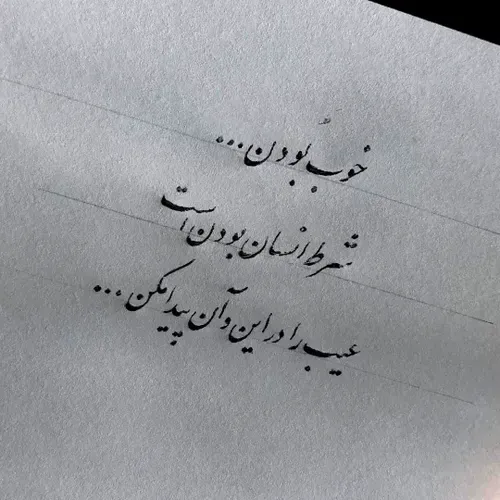 خوب بودن...
شرط انسان بودن است
عیب را در این و آن پیدا مکن...